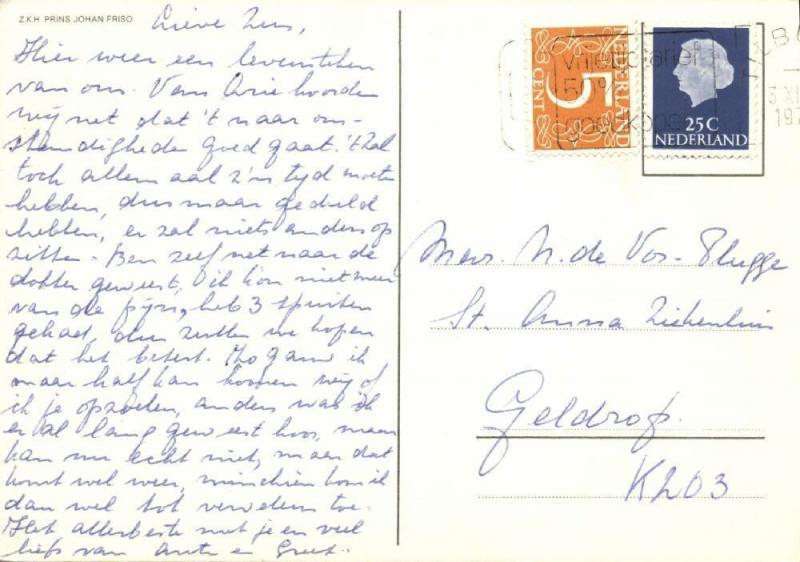 Z.K.H. PRINS JOHAN FRISO
Lieve Zus,
Hier weer een levensteken
van ons. Van Arie hoorden
wij net dat 't naar om-
standigheden goed gaat. 't Zal
toch allemaal z'n tijd moeten
hebben, dus maar geduld
hebben, er zal niets anders op
zitten. Ben zelf net naar de
dokter geweest, ik kon niet meer
van de pijn, heb 3 spuiten
gehad, dus zullen we hopen
dat het betert. Zo gauw ik
maar half kan komen wij of
ik je opzoeken, anders was ik
er al lang geweest hoor, maar
kan nu echt niet, maar dat
komt wel weer, misschien kom ik
dan wel tot vervelens toe.
Het allerbeste met je en veel
liefs van en Greet.
NEDERLAND
5
CENT
25 C
NEDERLAND
50%
Mevr. N. de Vos-Plugge
St. Anna Ziekenhuis
Geldrop.
K203